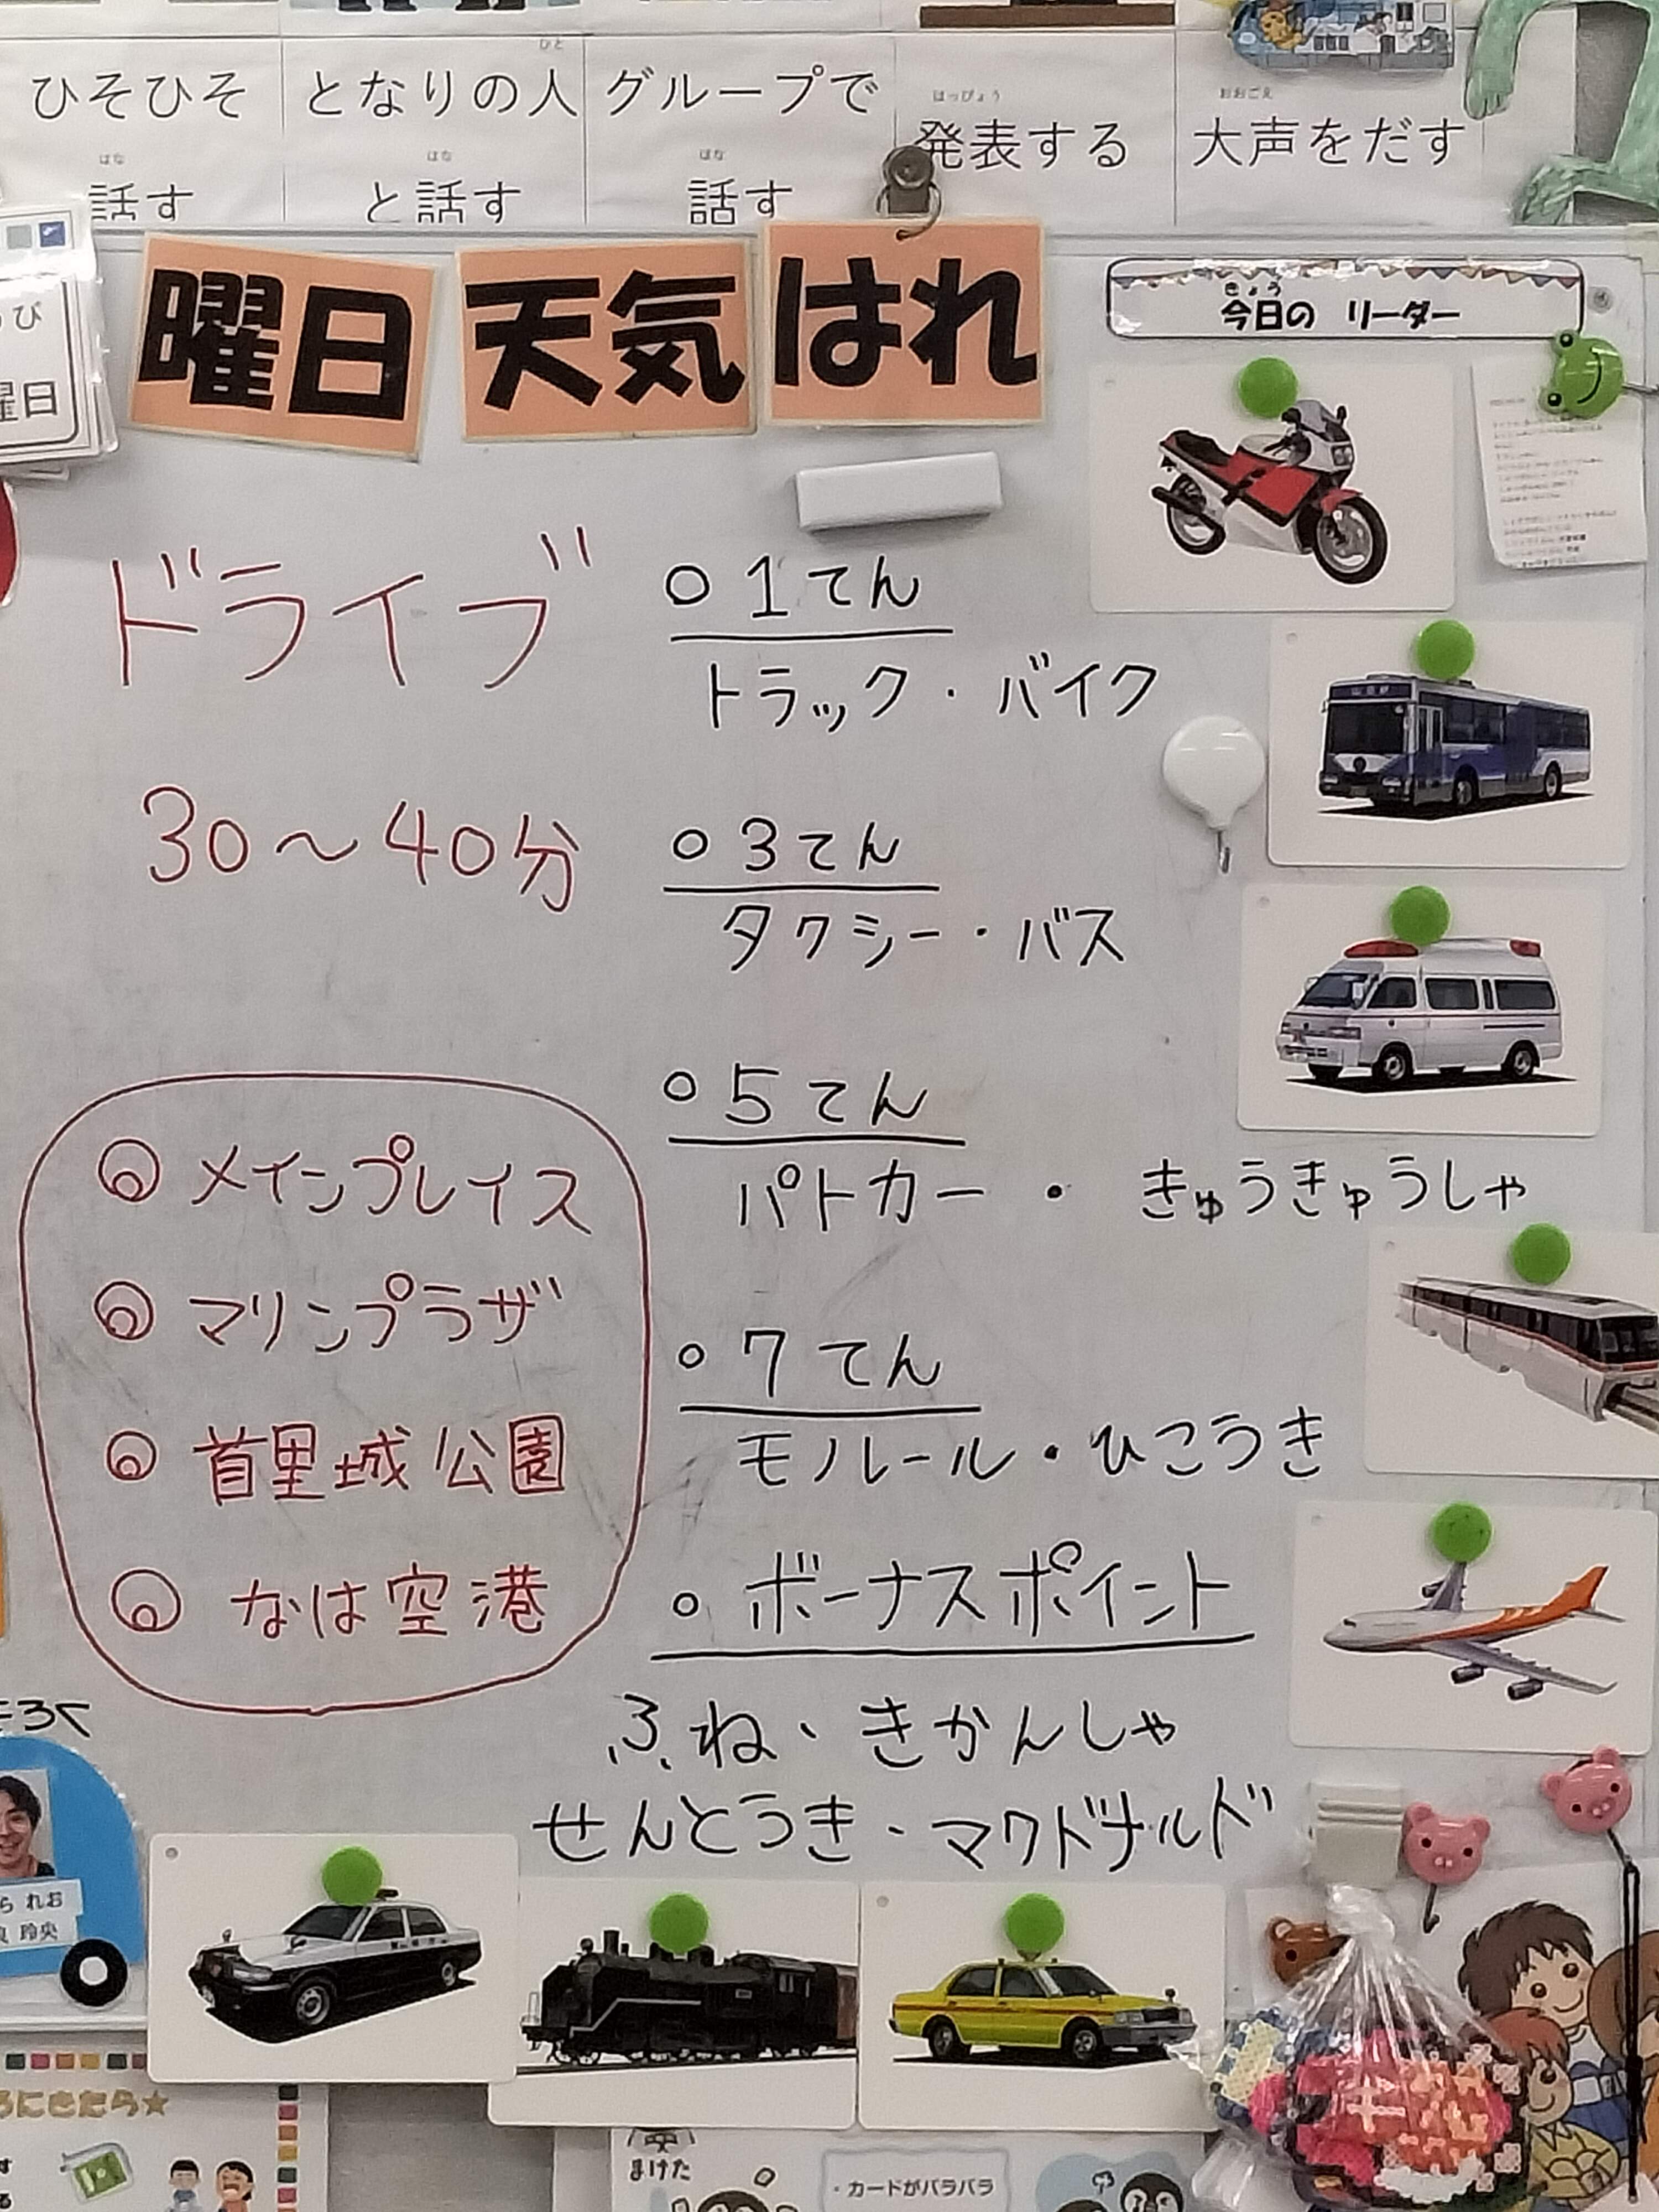 ひそひそ
話す
となりの人
と話す
グループで
話す
発表する
大声をだす
曜日
天気
はれ
今日の リーダー
曜日
ドライブ
30〜40分
◎ メインプレイス
◎ マリンプラザ
◎ 首里城公園
◎ なは空港
○ 1てん
トラック・バイク
○ 3てん
タクシー・バス
○ 5てん
パトカー・きゅうきゅうしゃ
○ 7てん
モノレール・ひこうき
○ ボーナスポイント
ふね、きかんしゃ
せんとうき・マクドナルド
れお
玲央
にきたら★
まけた
・カードがバラバラ